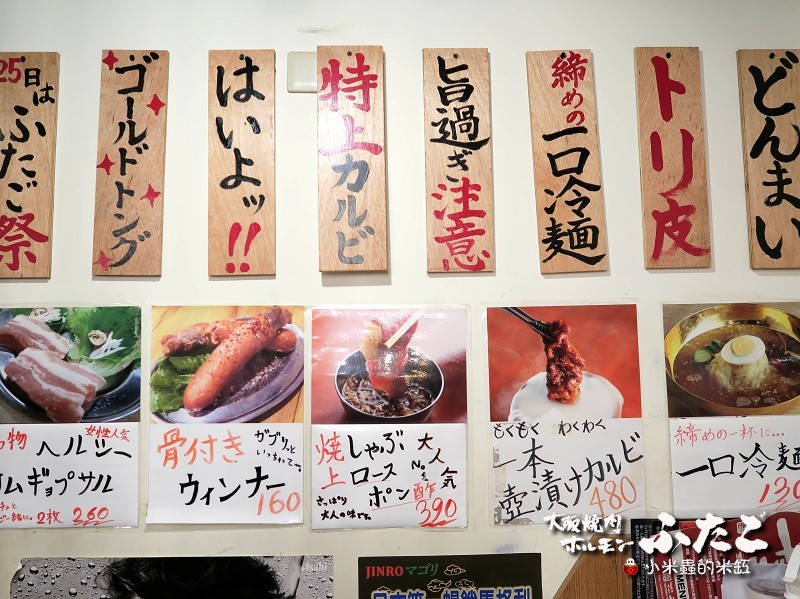 25日は
ふたご祭
ゴールドトング
はいよッ!!
特上カルビ
旨過ぎ注意
締めの一口冷麺
トリ皮
どんまい
物
ヘルシー
女性人気
ムギョプサル
2枚
260
骨付き
ガブリっと
いっちゃって〜。
ウィンナー
160
焼しゃぶ
上ロース
ポン酢
大人気
No.1
さっぱり
大人の味です。
390
もくもく わくわく
一本
壺漬けカルビ
480
締めの一杯に...
一口冷麺
130
大阪焼肉
ホルモン
ふたご
小米蟲的米缸
JINRO マッコリ